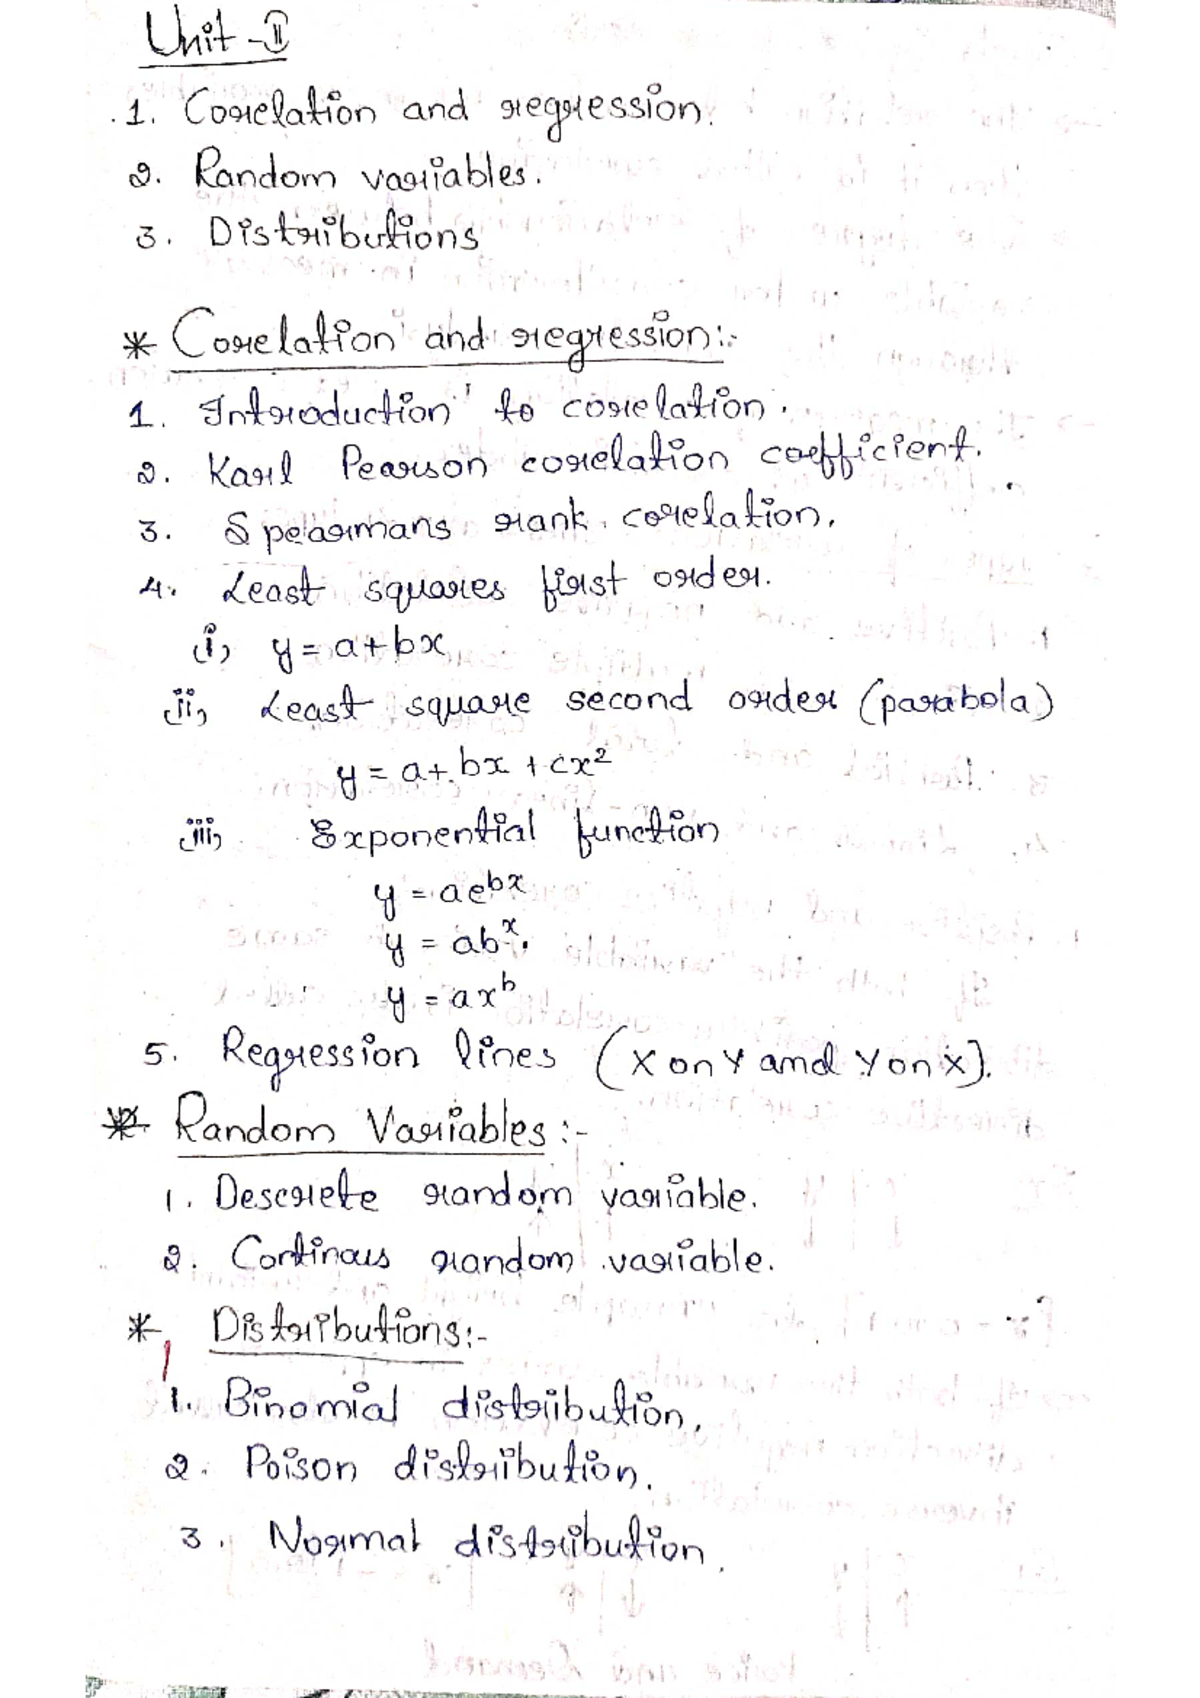 Unit - II
1. Corelation and regression.
2. Random variables.
3. Distributions
* Corelation and regression:-
1. Introduction to corelation.
2. Karl Pearson corelation coefficient.
3. Spearmans rank corelation.
4. Least squares first order.
i, y = a+bx
ii, Least square second order (parabola)
y = a+bx+cx²
iii, Exponential function
y = ae^bx
y = ab^x.
y = ax^b
5. Regression lines (X on Y and Y on X).
* Random Variables :-
1. Descrete random variable.
2. Continous random variable.
* Distributions:-
1. Binomial distribution.
2. Poison distribution.
3. Normal distribution.